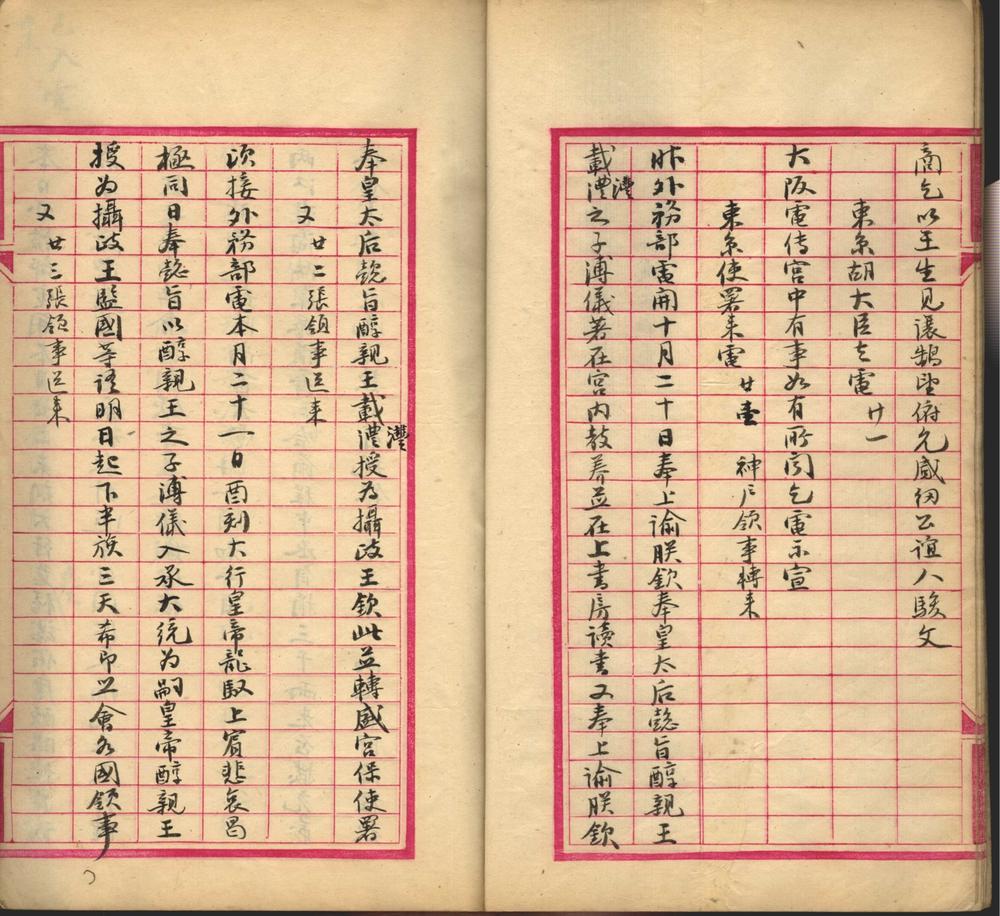 商乞以王生见讓鵠望俯允感紉公谊人駿文
東京胡大臣去電 廿一
大阪電传宫中有事如有所闻乞電示宣
東京使署来電 廿壹 神户领事轉来
昨外務部電開十月二十日奉上谕朕钦奉皇太后懿旨醇親王
載灃之子溥儀著在宫内教养並在上書房读書又奉上谕朕钦
奉皇太后懿旨醇親王載灃授为攝政王钦此並轉盛宫保使署
又 廿二張领事送来
顷接外務部電本月二十一日酉刻大行皇帝龍馭上賓悲哀曷
極同日奉懿旨以醇親王之子溥儀入承大统为嗣皇帝醇親王
授为攝政王監國等语明日起下半旗三天希即照會各國领事
又 廿三張领事送来